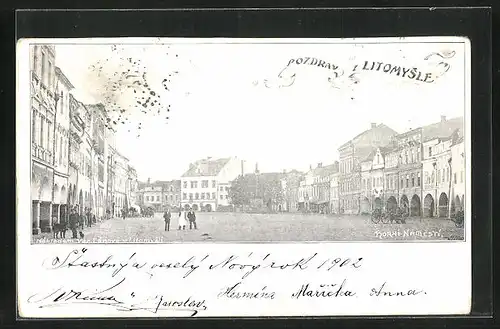 POZDRAV Z LITOMYŠLE.
HORNÍ NÁMĚSTÍ.
Šťastný a veselý Nový rok 1902
Jaroslav Hermína Mařička Anna.